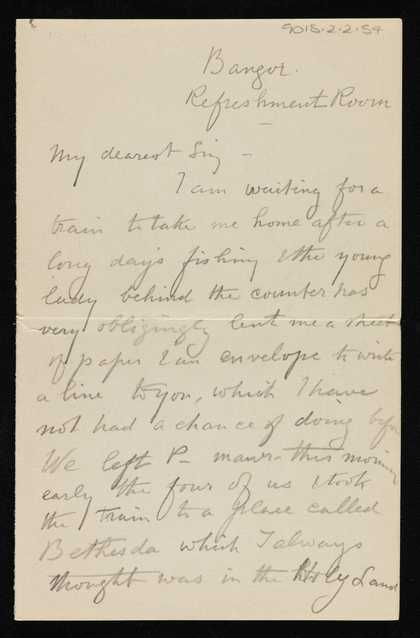 9015.2.2.59
Bangor.
Refreshment Room
—
My dearest Sing —
I am waiting for a
train to take me home after a
long days fishing & the young
lady behind the counter has
very obligingly lent me a sheet
of paper & an envelope to write
a line to you, which I have
not had a chance of doing before
We left P— mawr this morning
early the four of us & took
the train to a place called
Bethesda which I always
thought was in the Holy Land